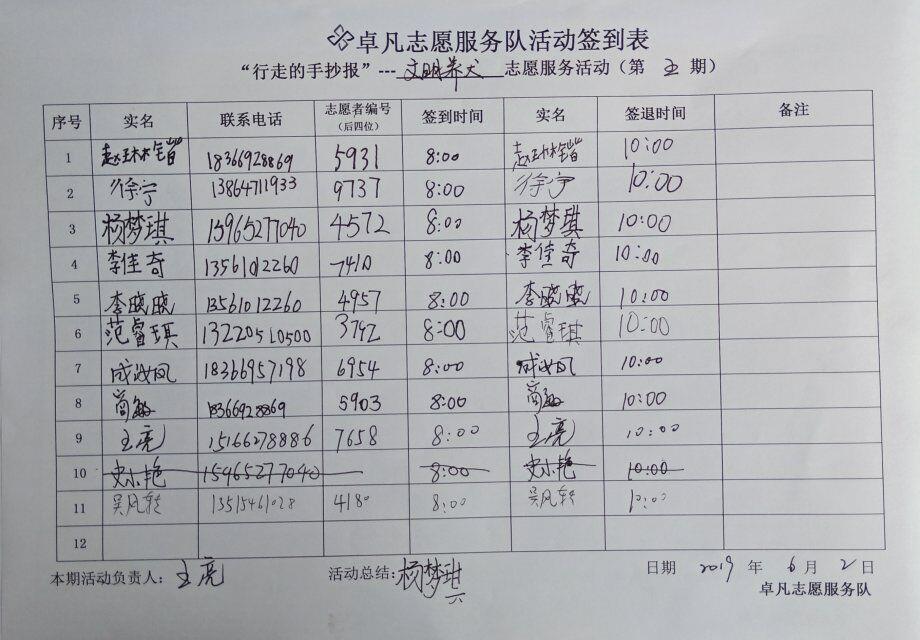 卓凡志愿服务队活动签到表
“行走的手抄报”---文明养犬 志愿服务活动（第 五 期）
序号 实名 联系电话 志愿者编号（后四位） 签到时间 实名 签退时间 备注
1 赵琳锴 18366928869 5931 8:00 赵琳锴 10:00
2 徐宁 13864711933 9737 8:00 徐宁 10:00
3 杨梦琪 15965277040 4572 8:00 杨梦琪 10:00
4 李佳奇 13561012260 7410 8:00 李佳奇 10:00
5 李晓晓 13561012260 4957 8:00 李晓晓 10:00
6 范睿琪 13220510500 3792 8:00 范睿琪 10:00
7 成汝凤 18366957198 6954 8:00 成汝凤 10:00
8 商敏 18366928869 5903 8:00 商敏 10:00
9 王亮 15166278886 7658 8:00 王亮 10:00
10 史小艳 15965277040 8:00 史小艳 10:00
11 吴凡轩 13515461028 4180 8:00 吴凡轩 10:00
12
本期活动负责人：王亮 活动总结：杨梦琪 日期 2019 年 6 月 2 日
卓凡志愿服务队